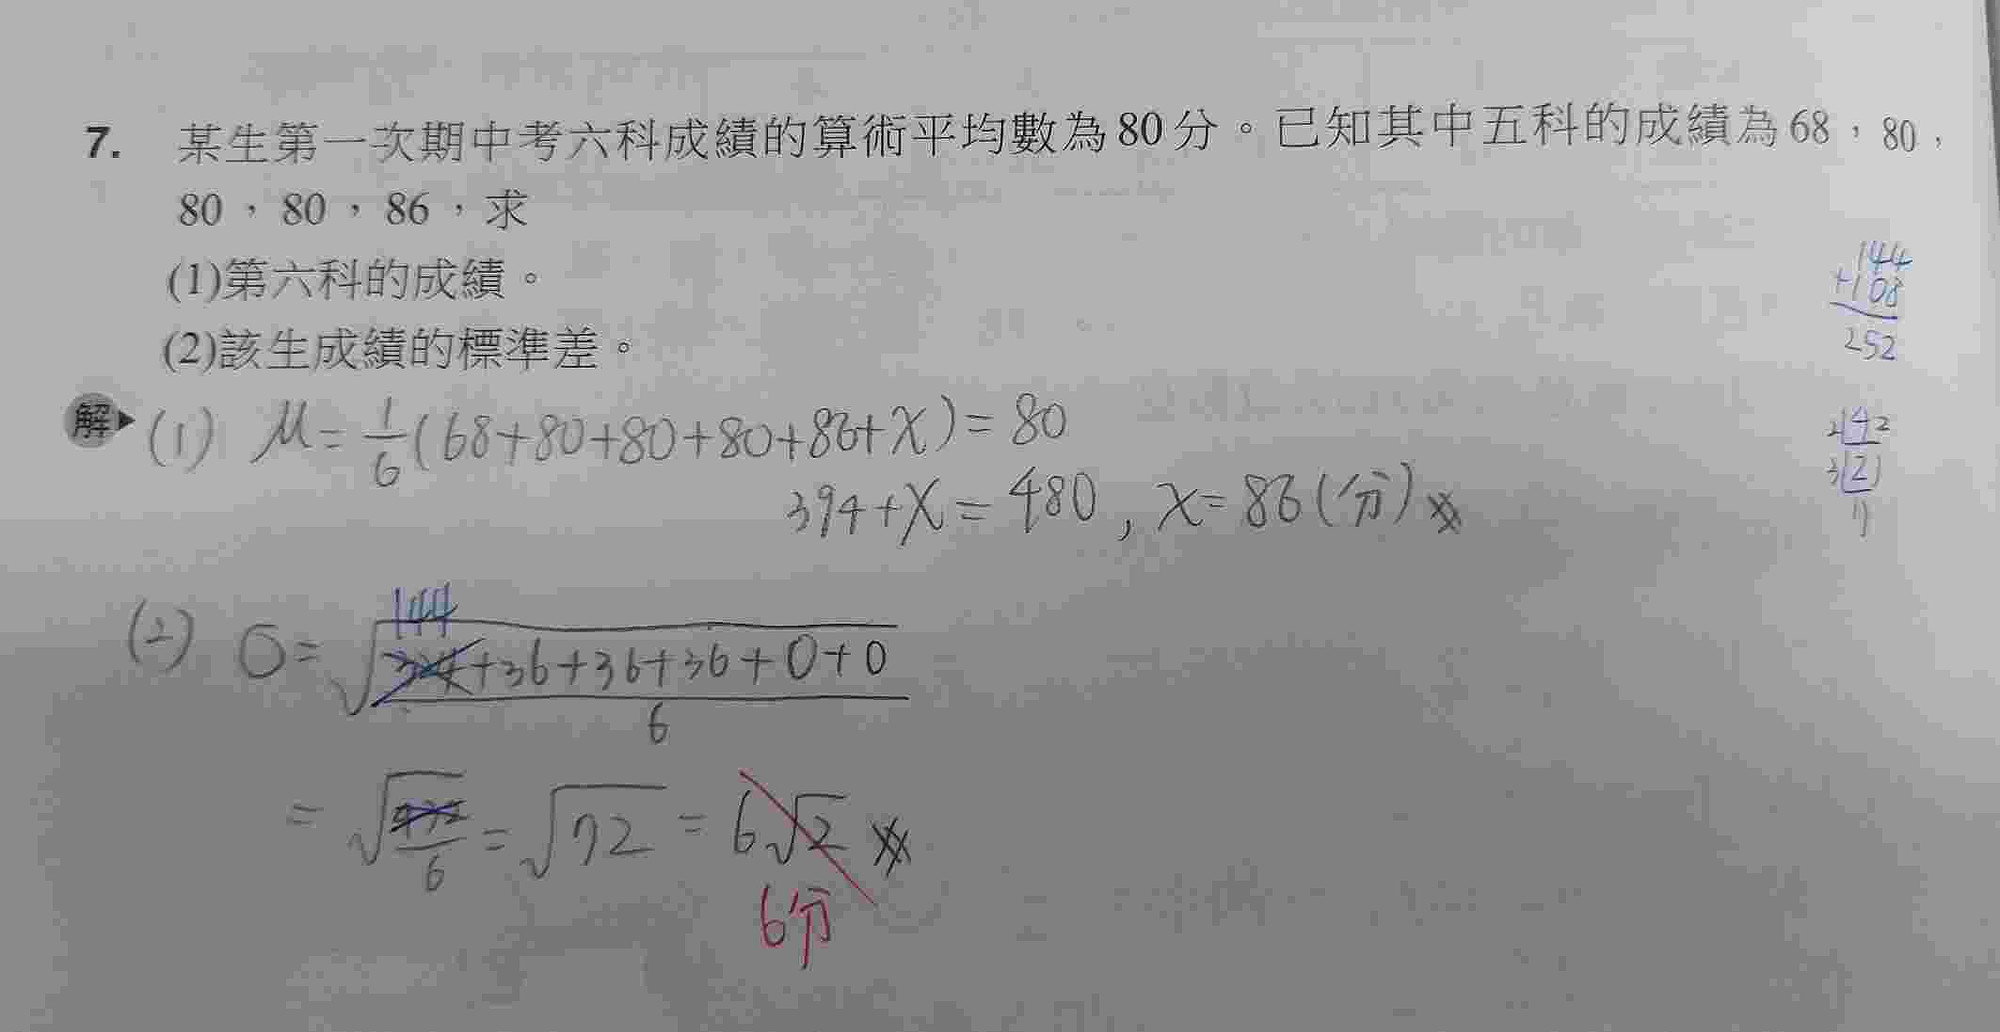 7. 某生第一次期中考六科成績的算術平均數為80分。已知其中五科的成績為68，80，
80，80，86，求
(1)第六科的成績。
(2)該生成績的標準差。
144
+108
252
解 (1) μ=1/6(68+80+80+80+86+x)=80
394+x=480, x=86(分)
2 42
3 21
(2) σ=√((144+36+36+36+0+0)/6)
=√(/6)=√72=6√2
6分